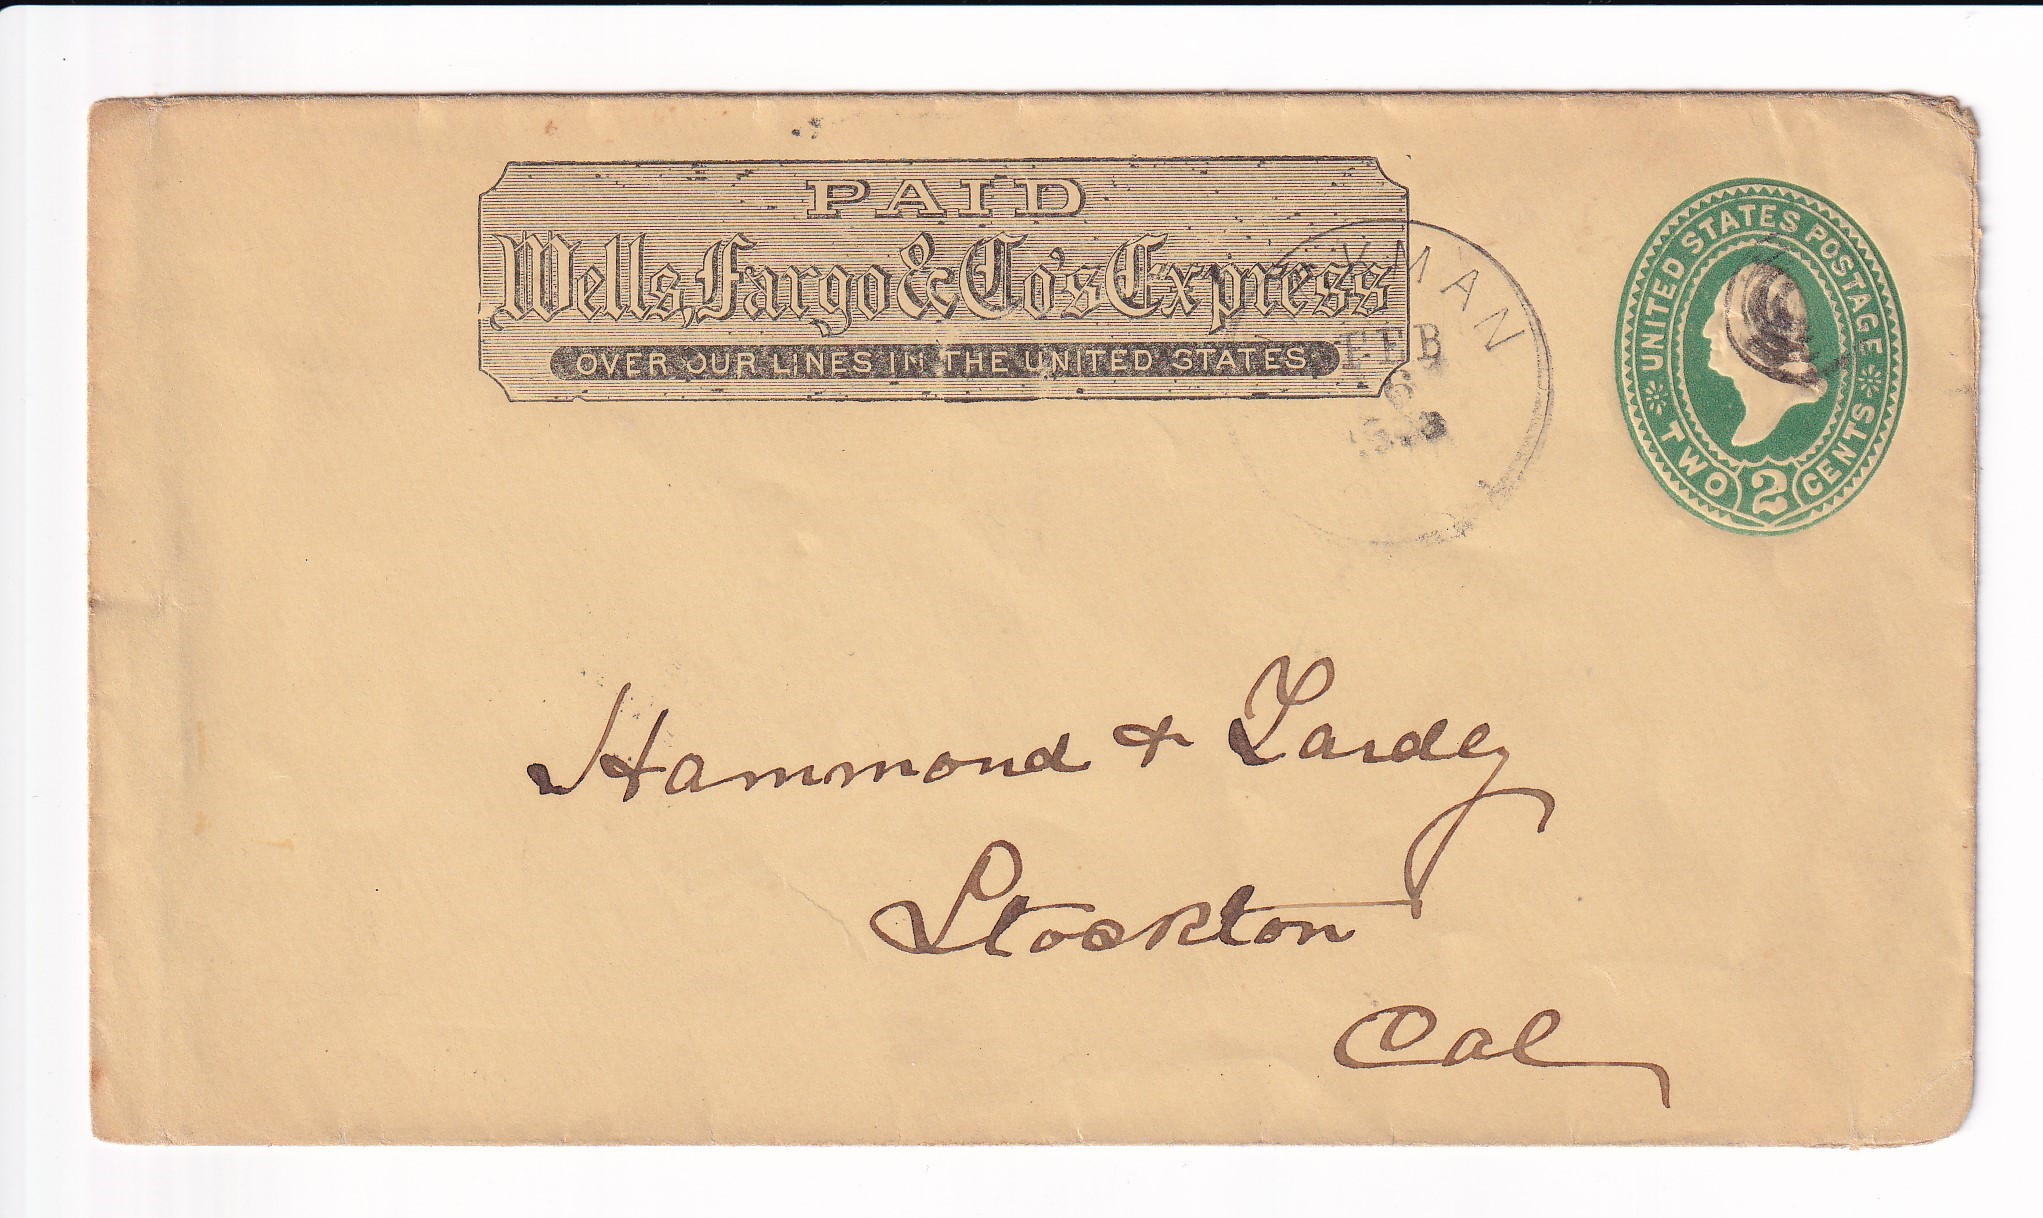 PAID
Wells, Fargo & Co's Express
OVER OUR LINES IN THE UNITED STATES
FEB
6
UNITED STATES POSTAGE
TWO 2 CENTS
Hammond & Yardley
Stockton
Cal